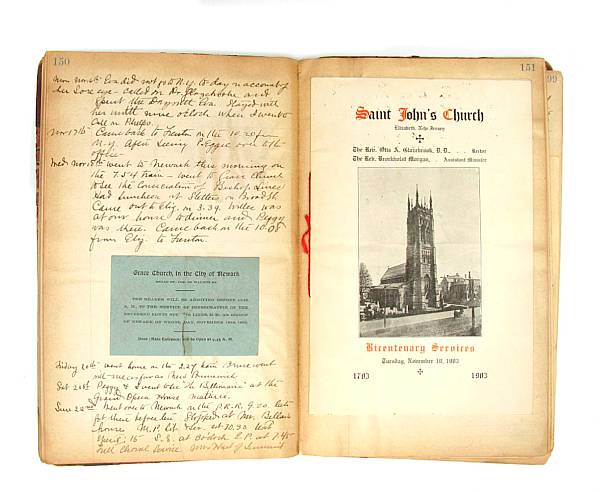 150
Mon Nov 16th Eva did not go to N.Y. to day on account of
her sore eye - called on Dr. and
spent the day with Eva. Stayed with
her until nine o'clock when I went to
call on Phelps.
Nov 17th Came back to Trenton on the 10.20 from
N.Y. after seeing Peggie over to the
office
Wed Nov 18th went to Newark this morning on
the 7.54 train - went to Grace Church
to see the Consecration of Bishop Lines
Had luncheon at on Broad St.
Came out to Eliz. on 3.39. Willie was
at our house to dinner and Peggy
was there. Came back on the 10.08
from Eliz. to Trenton.
Grace Church, in the City of Newark
BROAD ST., COR. OF WALNUT ST.
THE BEARER WILL BE ADMITTED BEFORE
A. M., TO THE SERVICE OF CONSECRATION OF THE
REVEREND EDWIN LINES, D.D., AS BISHOP
OF NEWARK ON WEDNESDAY, NOVEMBER 18TH, 1903.
Door (Main Entrance) will be Open at A. M.
Friday 20th went home on the 2.27 train Bruce went
with me as far as New Brunswick
Sat 21st Peggy & I went to see "The Bellringer" at the
Grand Opera House
Sun 22nd Went over to Newark on the P.R.R. 9.20
Stopped at Mr.
house M.P. Lit & Ser. at 10.30 text
S.S. at E.P. at 7.45
Full Choral Service
151
99
Saint John's Church
Elizabeth, New Jersey
The Rev. Otis A. Glazebrook, D. D., . . Rector
The Rev. Brockholst Morgan, . . Assistant Minister
Bicentenary Services
Tuesday, November 10, 1903
1703 1903